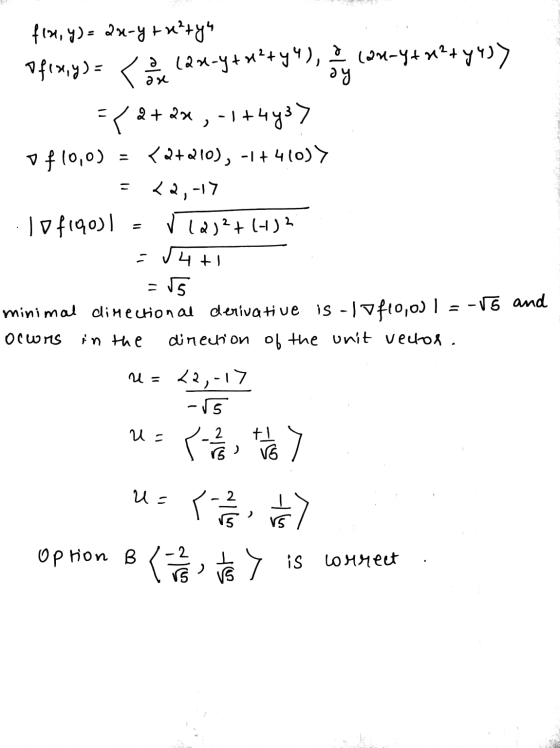 f(x,y) = 2x-y+x²+y⁴
∇f(x,y) = ⟨ ∂/∂x (2x-y+x²+y⁴), ∂/∂y (2x-y+x²+y⁴) ⟩
= ⟨ 2+2x, -1+4y³ ⟩
∇f(0,0) = ⟨2+2(0), -1+4(0)⟩
= ⟨2,-1⟩
|∇f(0,0)| = √((2)²+(-1)²)
= √(4+1)
= √5
minimal directional derivative is -|∇f(0,0)| = -√5 and
occurs in the direction of the unit vector.
u = ⟨2,-1⟩/-√5
u = ⟨-2/√5, +1/√5⟩
u = ⟨-2/√5, 1/√5⟩
Option B ⟨-2/√5, 1/√5⟩ is correct.